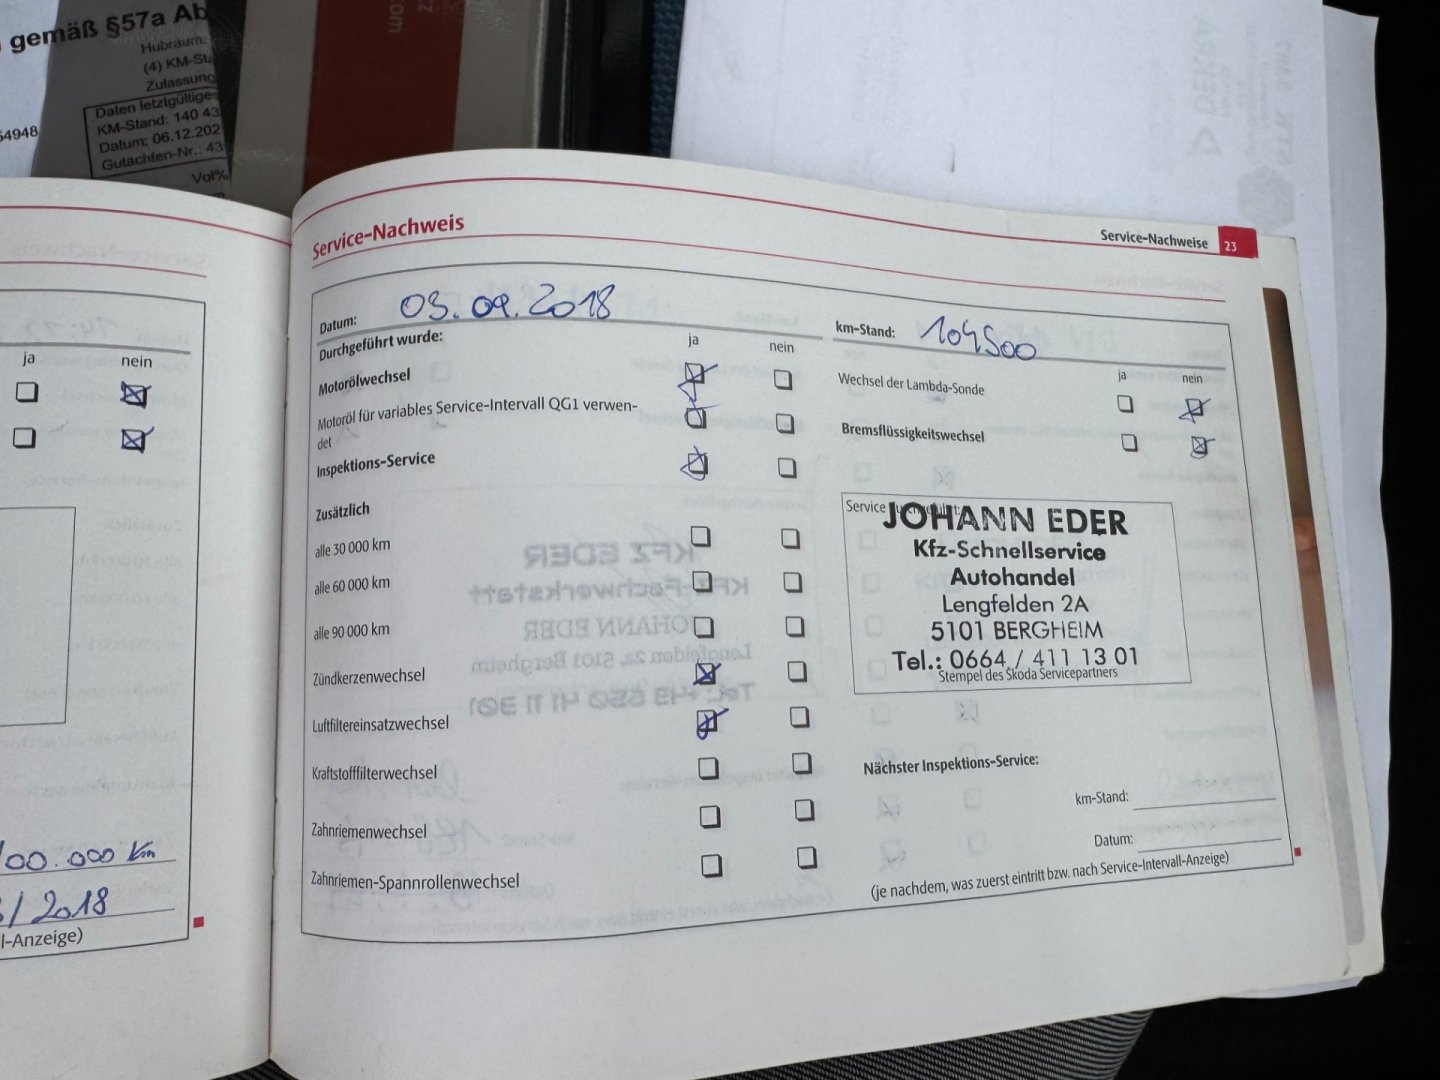 gemäß §57a Ab
Hubraum:
(4) KM-Sta
Zulassung
Daten letztgültiges
KM-Stand: 140 43
Datum: 06.12.202
Gutachten-Nr.: 43
54948
Vol%
ja nein
100.000 km
/2018
l-Anzeige)
Service-Nachweis
Service-Nachweise 23
Datum: 03.09.2018
km-Stand: 104500
Durchgeführt wurde: ja nein
ja nein
Motorölwechsel
Motoröl für variables Service-Intervall QG1 verwen-
det
Inspektions-Service
Zusätzlich
alle 30 000 km
alle 60 000 km
alle 90 000 km
Zündkerzenwechsel
Luftfiltereinsatzwechsel
Kraftstofffilterwechsel
Zahnriemenwechsel
Zahnriemen-Spannrollenwechsel
Wechsel der Lambda-Sonde
Bremsflüssigkeitswechsel
Service durchgeführt:
JOHANN EDER
Kfz-Schnellservice
Autohandel
Lengfelden 2A
5101 BERGHEIM
Tel.: 0664 / 411 13 01
Stempel des Škoda Servicepartners
Nächster Inspektions-Service:
km-Stand:
Datum:
(je nachdem, was zuerst eintritt bzw. nach Service-Intervall-Anzeige)